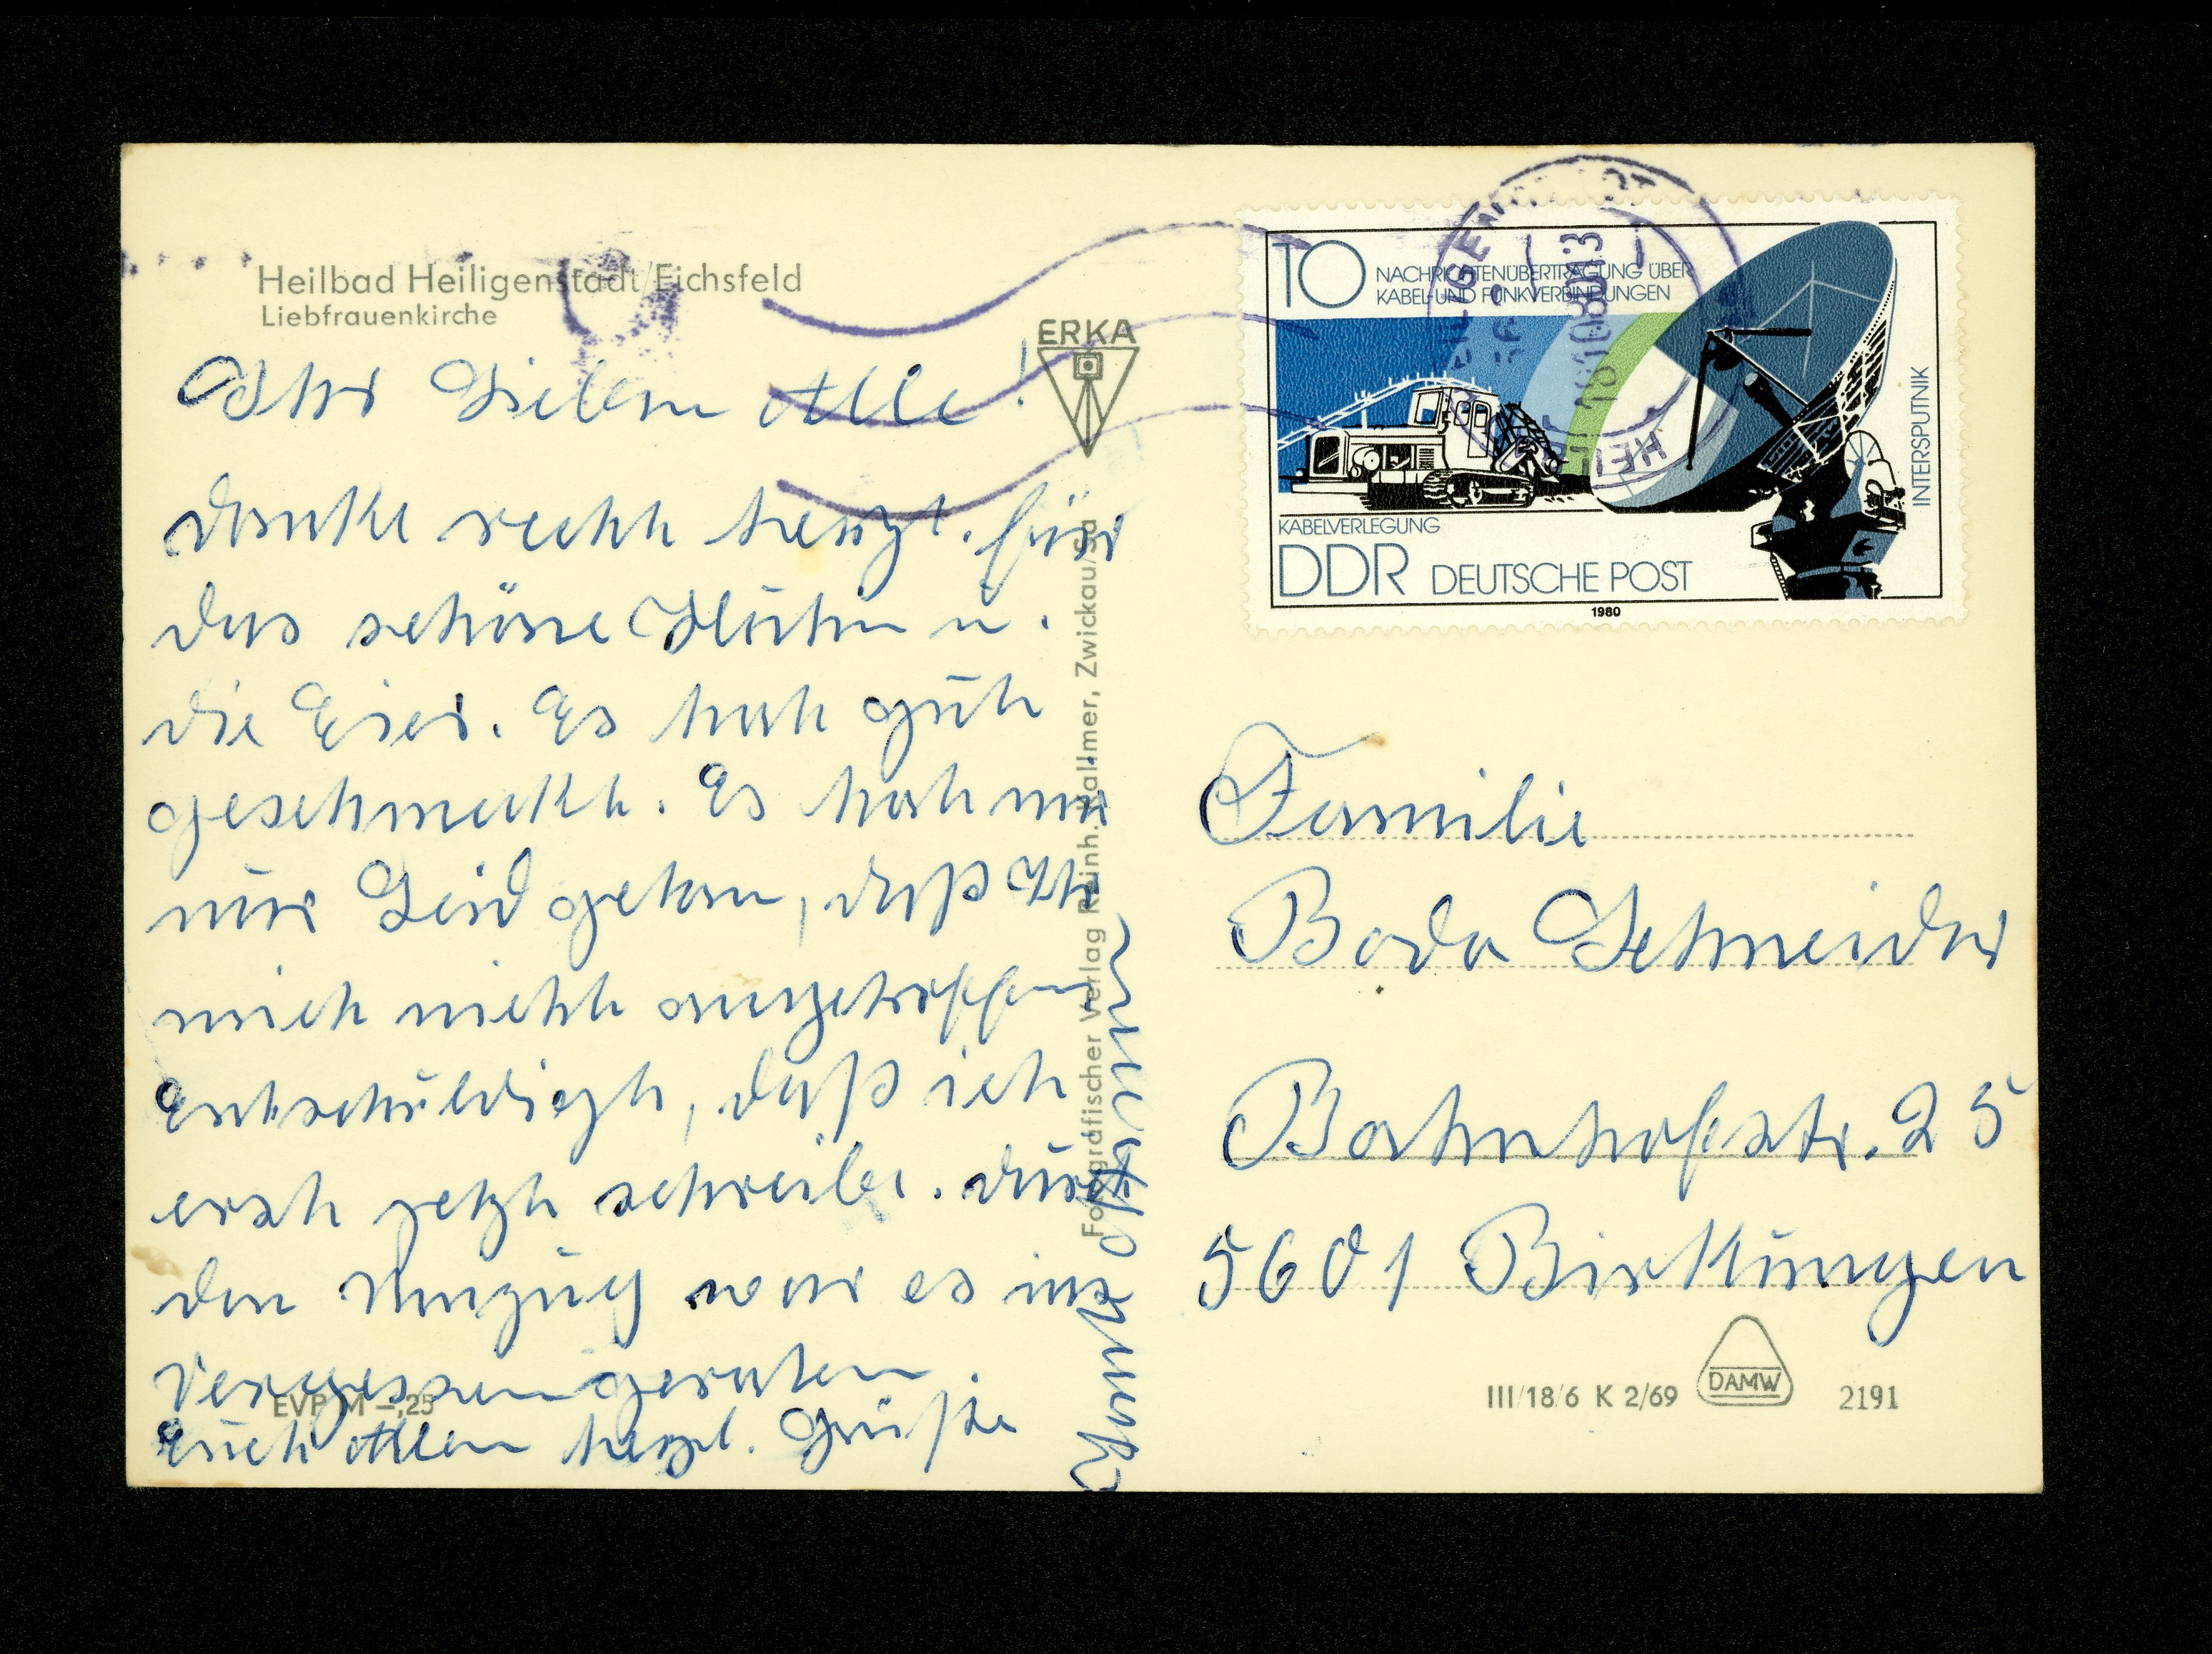 Heilbad Heiligenstadt/Eichsfeld
Liebfrauenkirche
ERKA
Ihr Lieben Alle!
danke recht herzl. für
das schöne Huhn u.
die Eier. Es hat gut
geschmeckt. Es hat mir
nur Leid getan, daß Ihr
mich nicht angetroffen
Entschuldigt, daß ich
erst jetzt schreibe. durch
den Umzug war es ins
Vergessen geraten.
Euch Allen herzl. Grüße
EVP M –,25
Fotografischer Verlag Reinh. Kallmer, Zwickau/Sa
10
NACHRICHTENÜBERTRAGUNG ÜBER
KABEL- UND FUNKVERBINDUNGEN
INTERSPUTNIK
KABELVERLEGUNG
DDR DEUTSCHE POST
1980
Familie
Bodo Schneider
Bahnhofstr. 25
5601 Birkungen
III/18/6 K 2/69
DAMW
2191